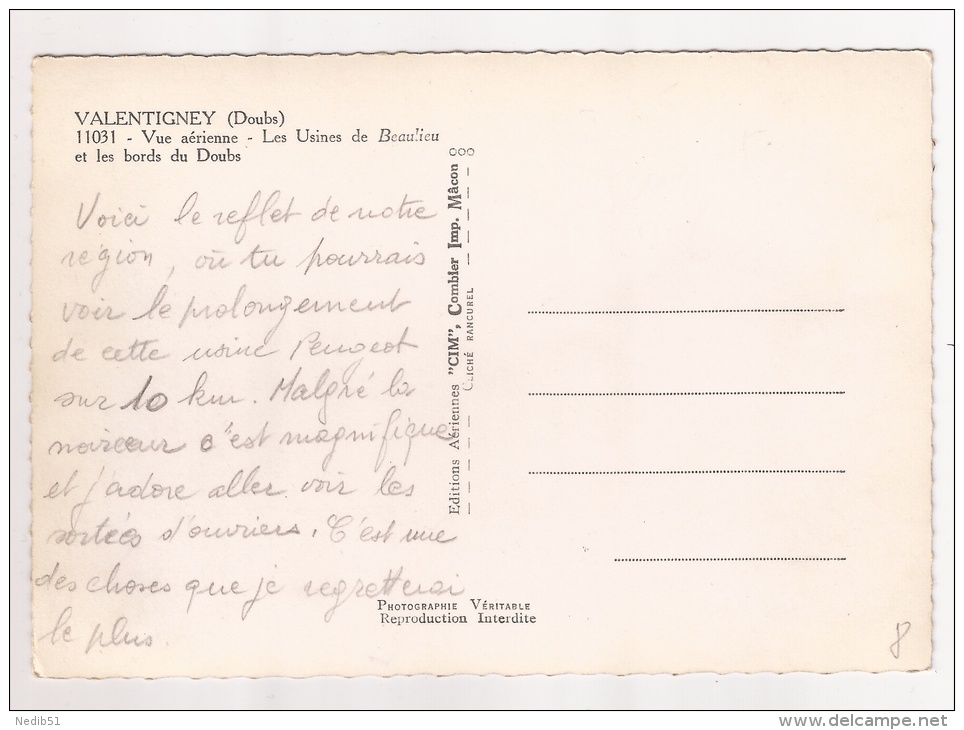 VALENTIGNEY (Doubs)
11031 - Vue aérienne - Les Usines de Beaulieu
et les bords du Doubs
Voici le reflet de notre
région, où tu pourrais
voir le prolongement
de cette usine Peugeot
sur 10 km. Malgré la
noirceur c'est magnifique
et j'adore aller voir les
sorties d'ouvriers. C'est une
des choses que je regretterai
le plus.
Editions Aériennes "CIM", Combier Imp. Mâcon
CLICHÉ RANCUREL
PHOTOGRAPHIE VÉRITABLE
Reproduction Interdite
8
Nedib51
www.delcampe.net